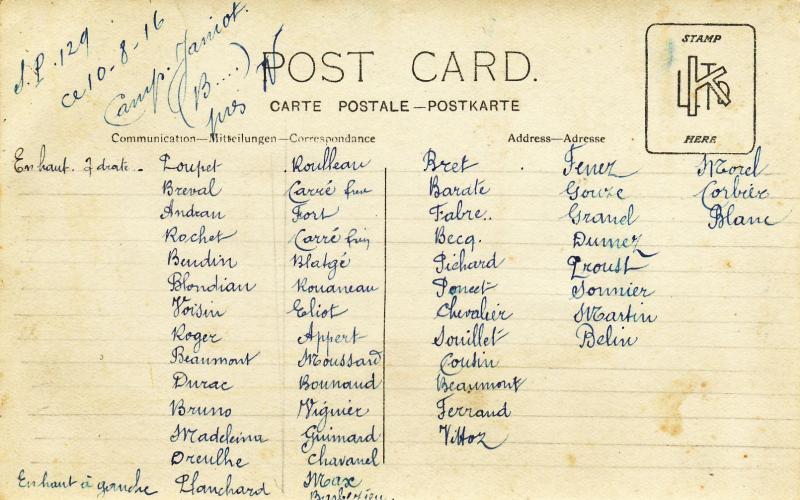 S.P. 129
ce 10-8-16
Camp. Janiot.
(B....)
près N
POST CARD.
CARTE POSTALE—POSTKARTE
Communication—Mitteilungen—Correspondance
Address—Adresse
STAMP
HERE
En haut. à drate -
Loupet
Breval
Andrau
Rochet
Beudin
Blondian
Voisin
Roger
Beaumont
Durac
Bruno
Madeleina
Dreulhe
En haut à gauche
Planchard
Roulleau
Carré
Fort
Carré
Blatgé
Rouaneau
Eliot
Appert
Moussard
Bounaud
Viguier
Guimard
Chavanel
Max
Bret
Barate
Fabre..
Becq.
Pichard
Poncet
Chevalier
Souillet
Cousin
Beaumont
Ferrand
Vittoz
Fenez
Gouze
Granel
Dumez
Proust
Sonnier
Martin
Belin
Morel
Corbier
Blanc